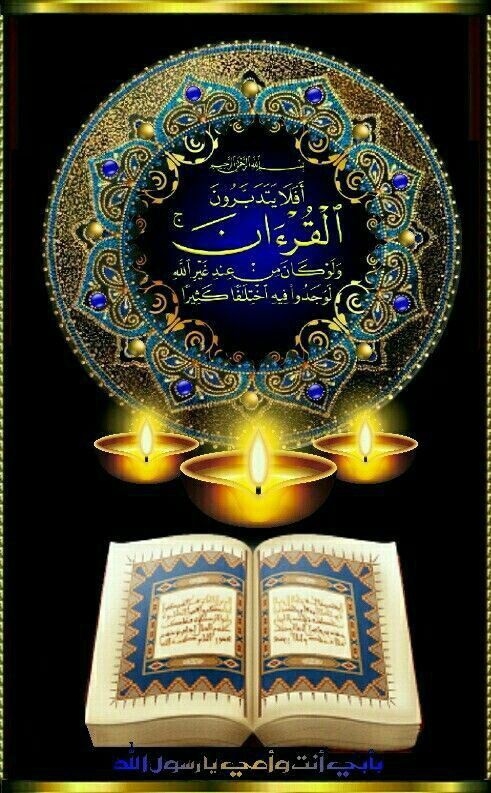 بسم الله الرحمن الرحيم
أَفَلَا يَتَدَبَّرُونَ
ٱلْقُرْءَانَ ۚ
وَلَوْ كَانَ مِنْ عِندِ غَيْرِ ٱللَّهِ
لَوَجَدُوا۟ فِيهِ ٱخْتِلَٰفًا كَثِيرًا
بأبي أنت وأمي يا رسول الله